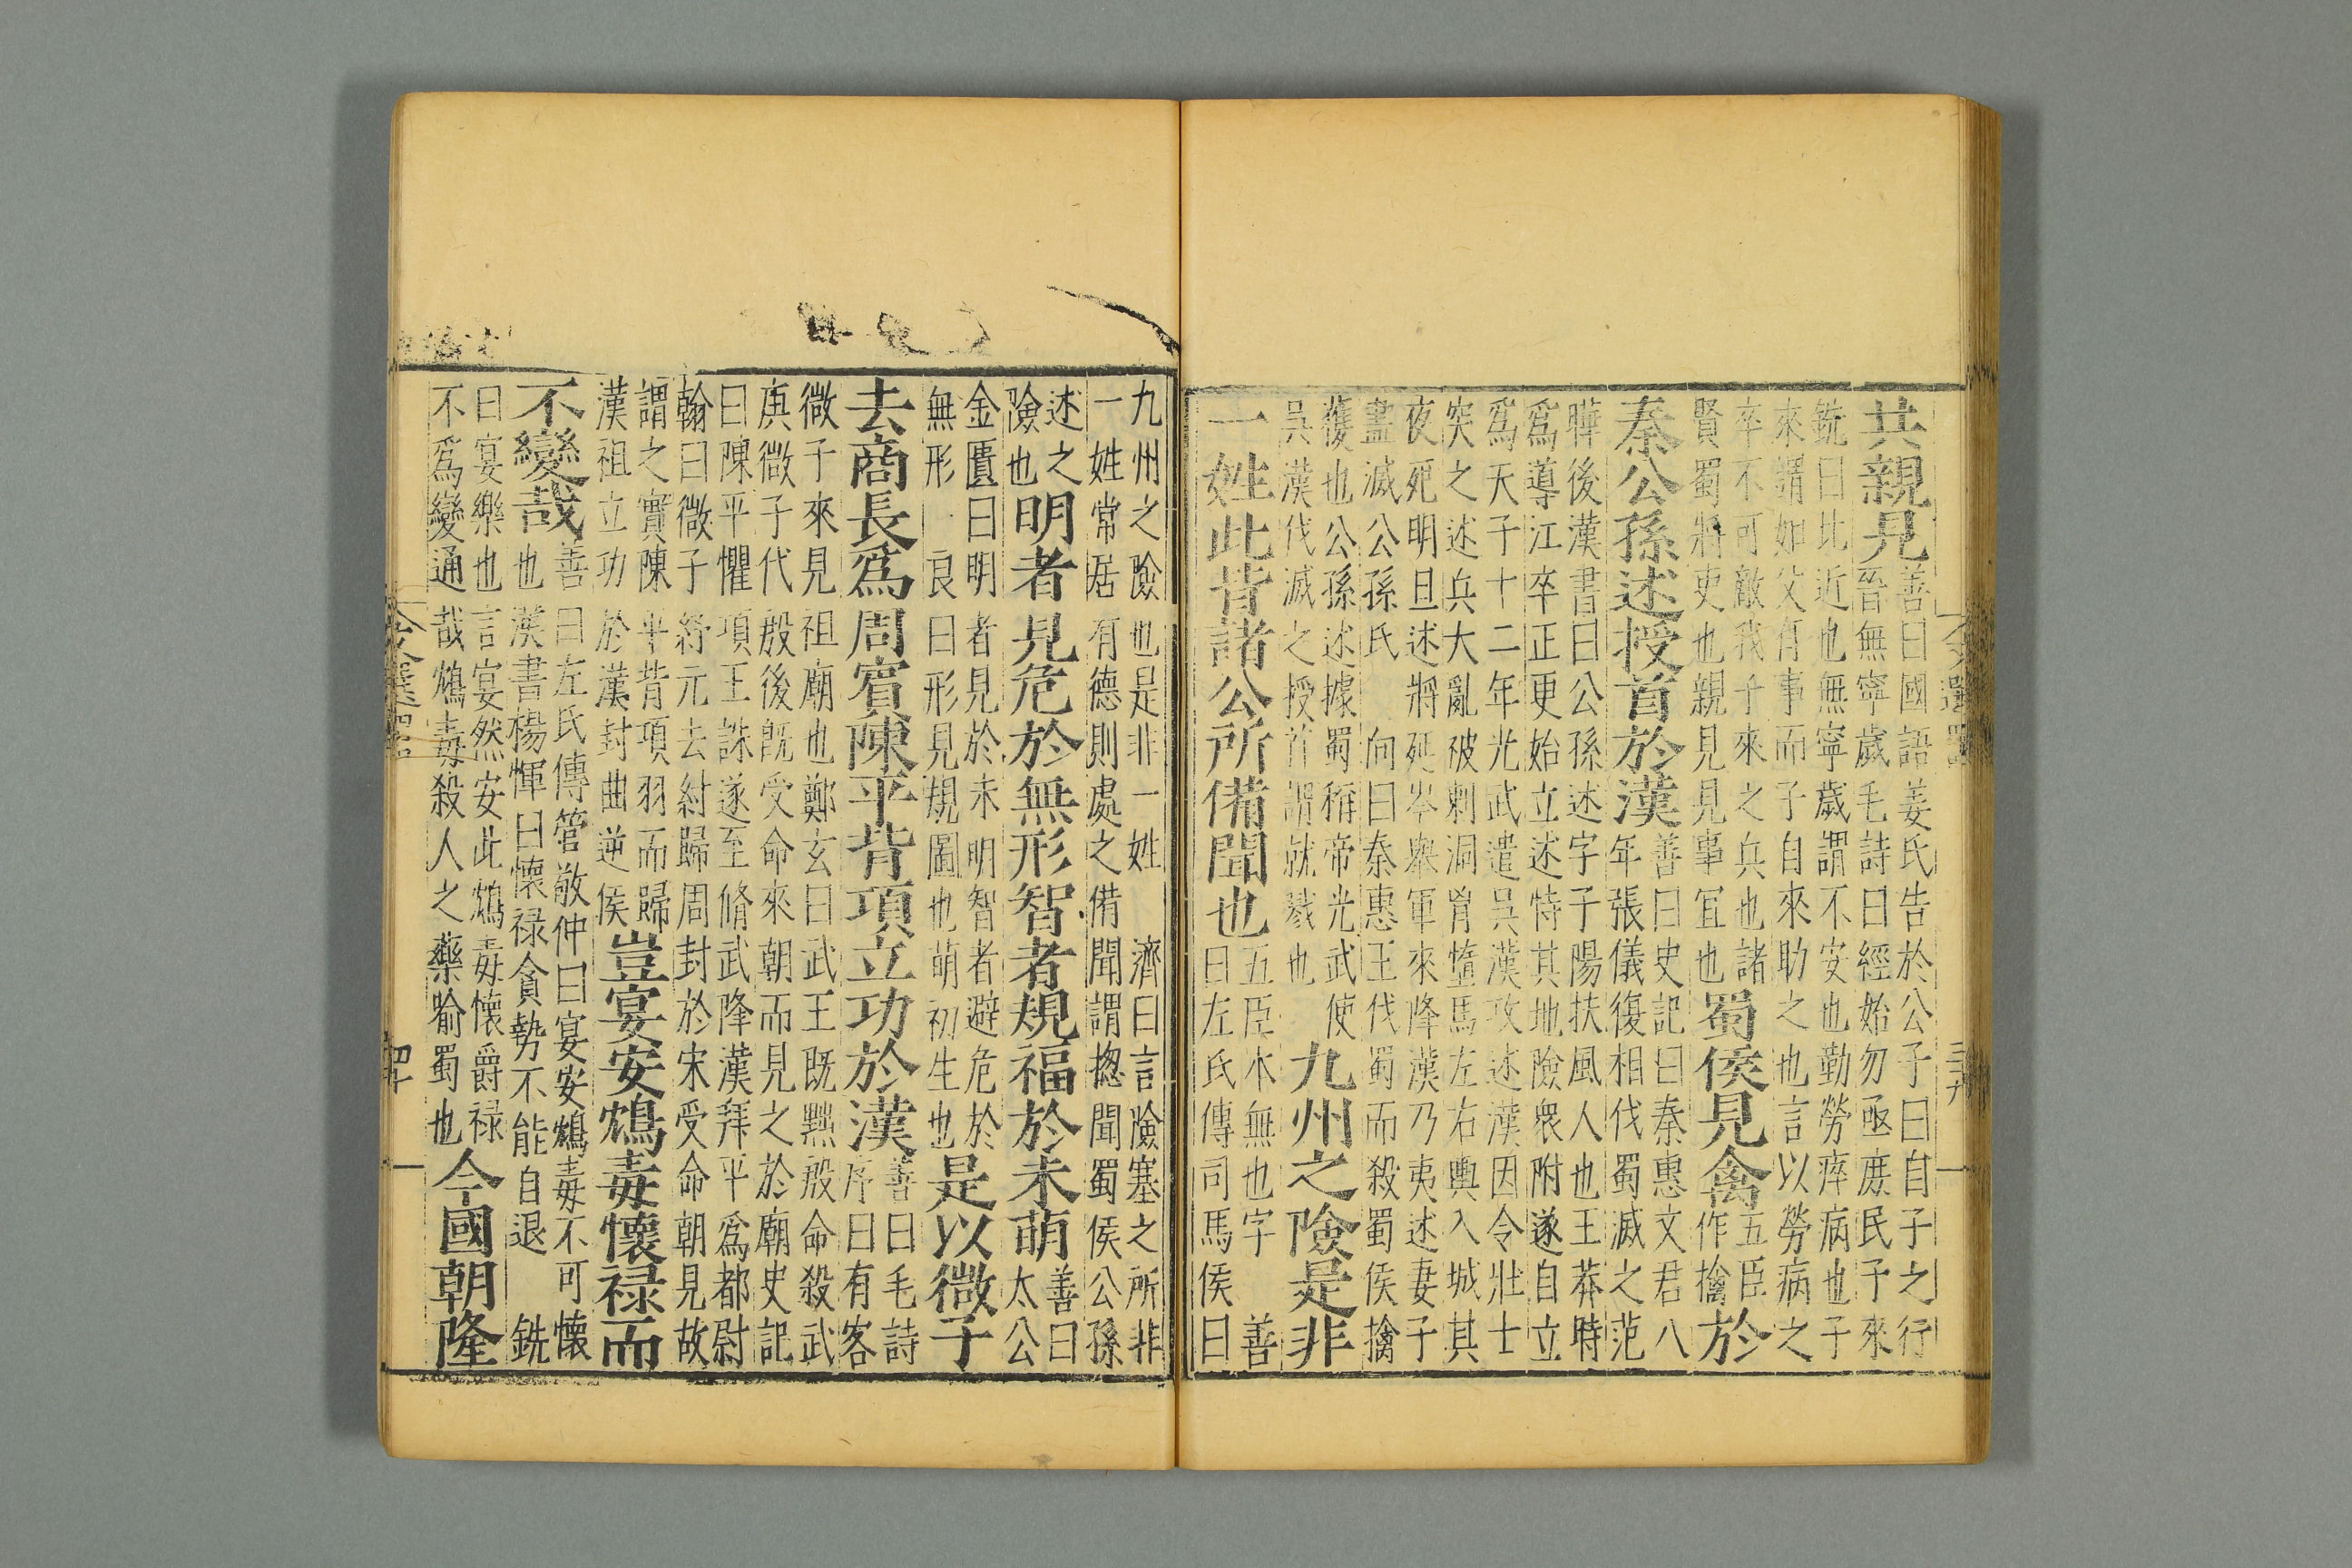 共親見善曰國語姜氏告於公子曰自子之行
晉無寧歲毛詩曰經始勿亟庶民子來
銑曰比近也無寧歲謂不安也勤勞瘁病也子
來謂如父有事而子自來助之也言以勞病之
卒不可敵我子來之兵也諸
賢蜀將吏也親見見事冝也蜀侯見禽五臣作擒於
秦公孫述授首於漢善曰史記曰秦惠文君八
年張儀復相伐蜀滅之范
曄後漢書曰公孫述字子陽扶風人也王莽時
爲導江卒正更始立述恃其地險衆附遂自立
爲天子十二年光武遣吳漢攻述漢因令壯士
突之述兵大亂被刺洞胷墮馬左右輿入城其
夜死明旦述將延岑舉軍來降漢乃夷述妻子
盡滅公孫氏 向曰秦惠王伐蜀而殺蜀侯擒
獲也公孫述據蜀稱帝光武使
吳漢伐滅之授首謂就戮也九州之險是非
一姓此皆諸公所備聞也五臣木無也字 善
曰左氏傳司馬侯曰
九州之險也是非一姓 濟曰言險塞之所非
一姓常居有德則處之備聞謂揔聞蜀侯公孫
述之
險也明者見危於無形智者規福於未萌善曰
太公
金匱曰明者見於未明智者避危於
無形 良曰形見規圖也萌初生也是以微子
去商長爲周賓陳平背項立功於漢善曰毛詩
序曰有客
微子來見祖廟也鄭玄曰武王既黜殷命殺武
庚微子代殷後既受命來朝而見之於廟史記
曰陳平懼項王誅遂至脩武降漢拜平爲都尉
翰曰微子紂元去紂歸周封於宋受命朝見故
謂之賓陳平背項羽而歸
漢祖立功於漢封曲逆侯豈宴安鴆毒懷禄而
不變哉善曰左氏傳管敬仲曰宴安鴆毒不可懷
也漢書楊惲曰懷禄貪勢不能自退 銑
曰宴樂也言宴然安此鴆毒懷爵禄
不爲變通哉鴆毒殺人之藥喻蜀也今國朝隆